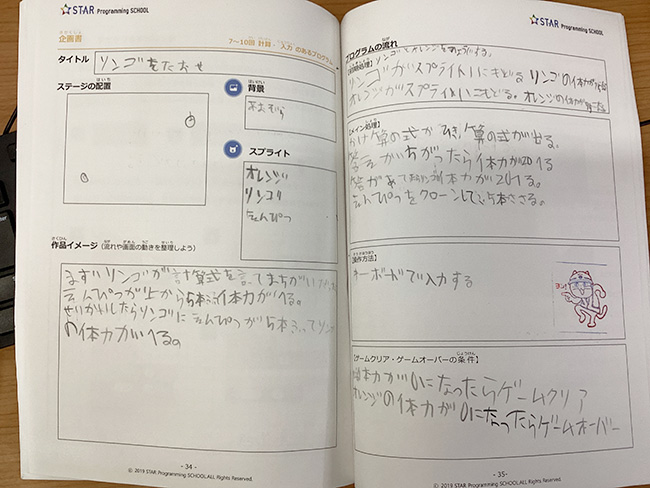 STAR Programming SCHOOL
きかくしょ
企画書
7～10回 計算・"入力"のあるプログラム
タイトル
リンゴをたおせ
ステージの配置
背景
あおぞら
スプライト
オレンジ
リンゴ
えんぴつ
作品イメージ（流れや画面の動きを整理しよう）
まずリンゴが計算式を言てまちがい
えんぴつが上から5本ふって体力がへる。
せいかいしたらリンゴにえんぴつが5本ふってリンゴ
の体力がへる。
- 34 -
© 2019 STAR Programming SCHOOL.ALL Rights Reserved.
STAR Programming SCHOOL
プログラムの流れ
リンゴとオレンジを
リンゴがスプライト1にもどる。リンゴの体力が
オレンジがスプライト1にもどる。オレンジの体力が
【メイン処理】
かけ算の式かひき算の式が出る。
答えがちがったら体力が20へる
答があて体力が20へる。
えんぴつをクローンして5本ささる。
【操作方法】
キーボードで入力する
ヨシ!
【ゲームクリア・ゲームオーバーの条件】
体力が0になったらゲームクリア
オレンジの体力が0になったらゲームオーバー
- 35 -
© 2019 STAR Programming SCHOOL.ALL Rights Reserved.